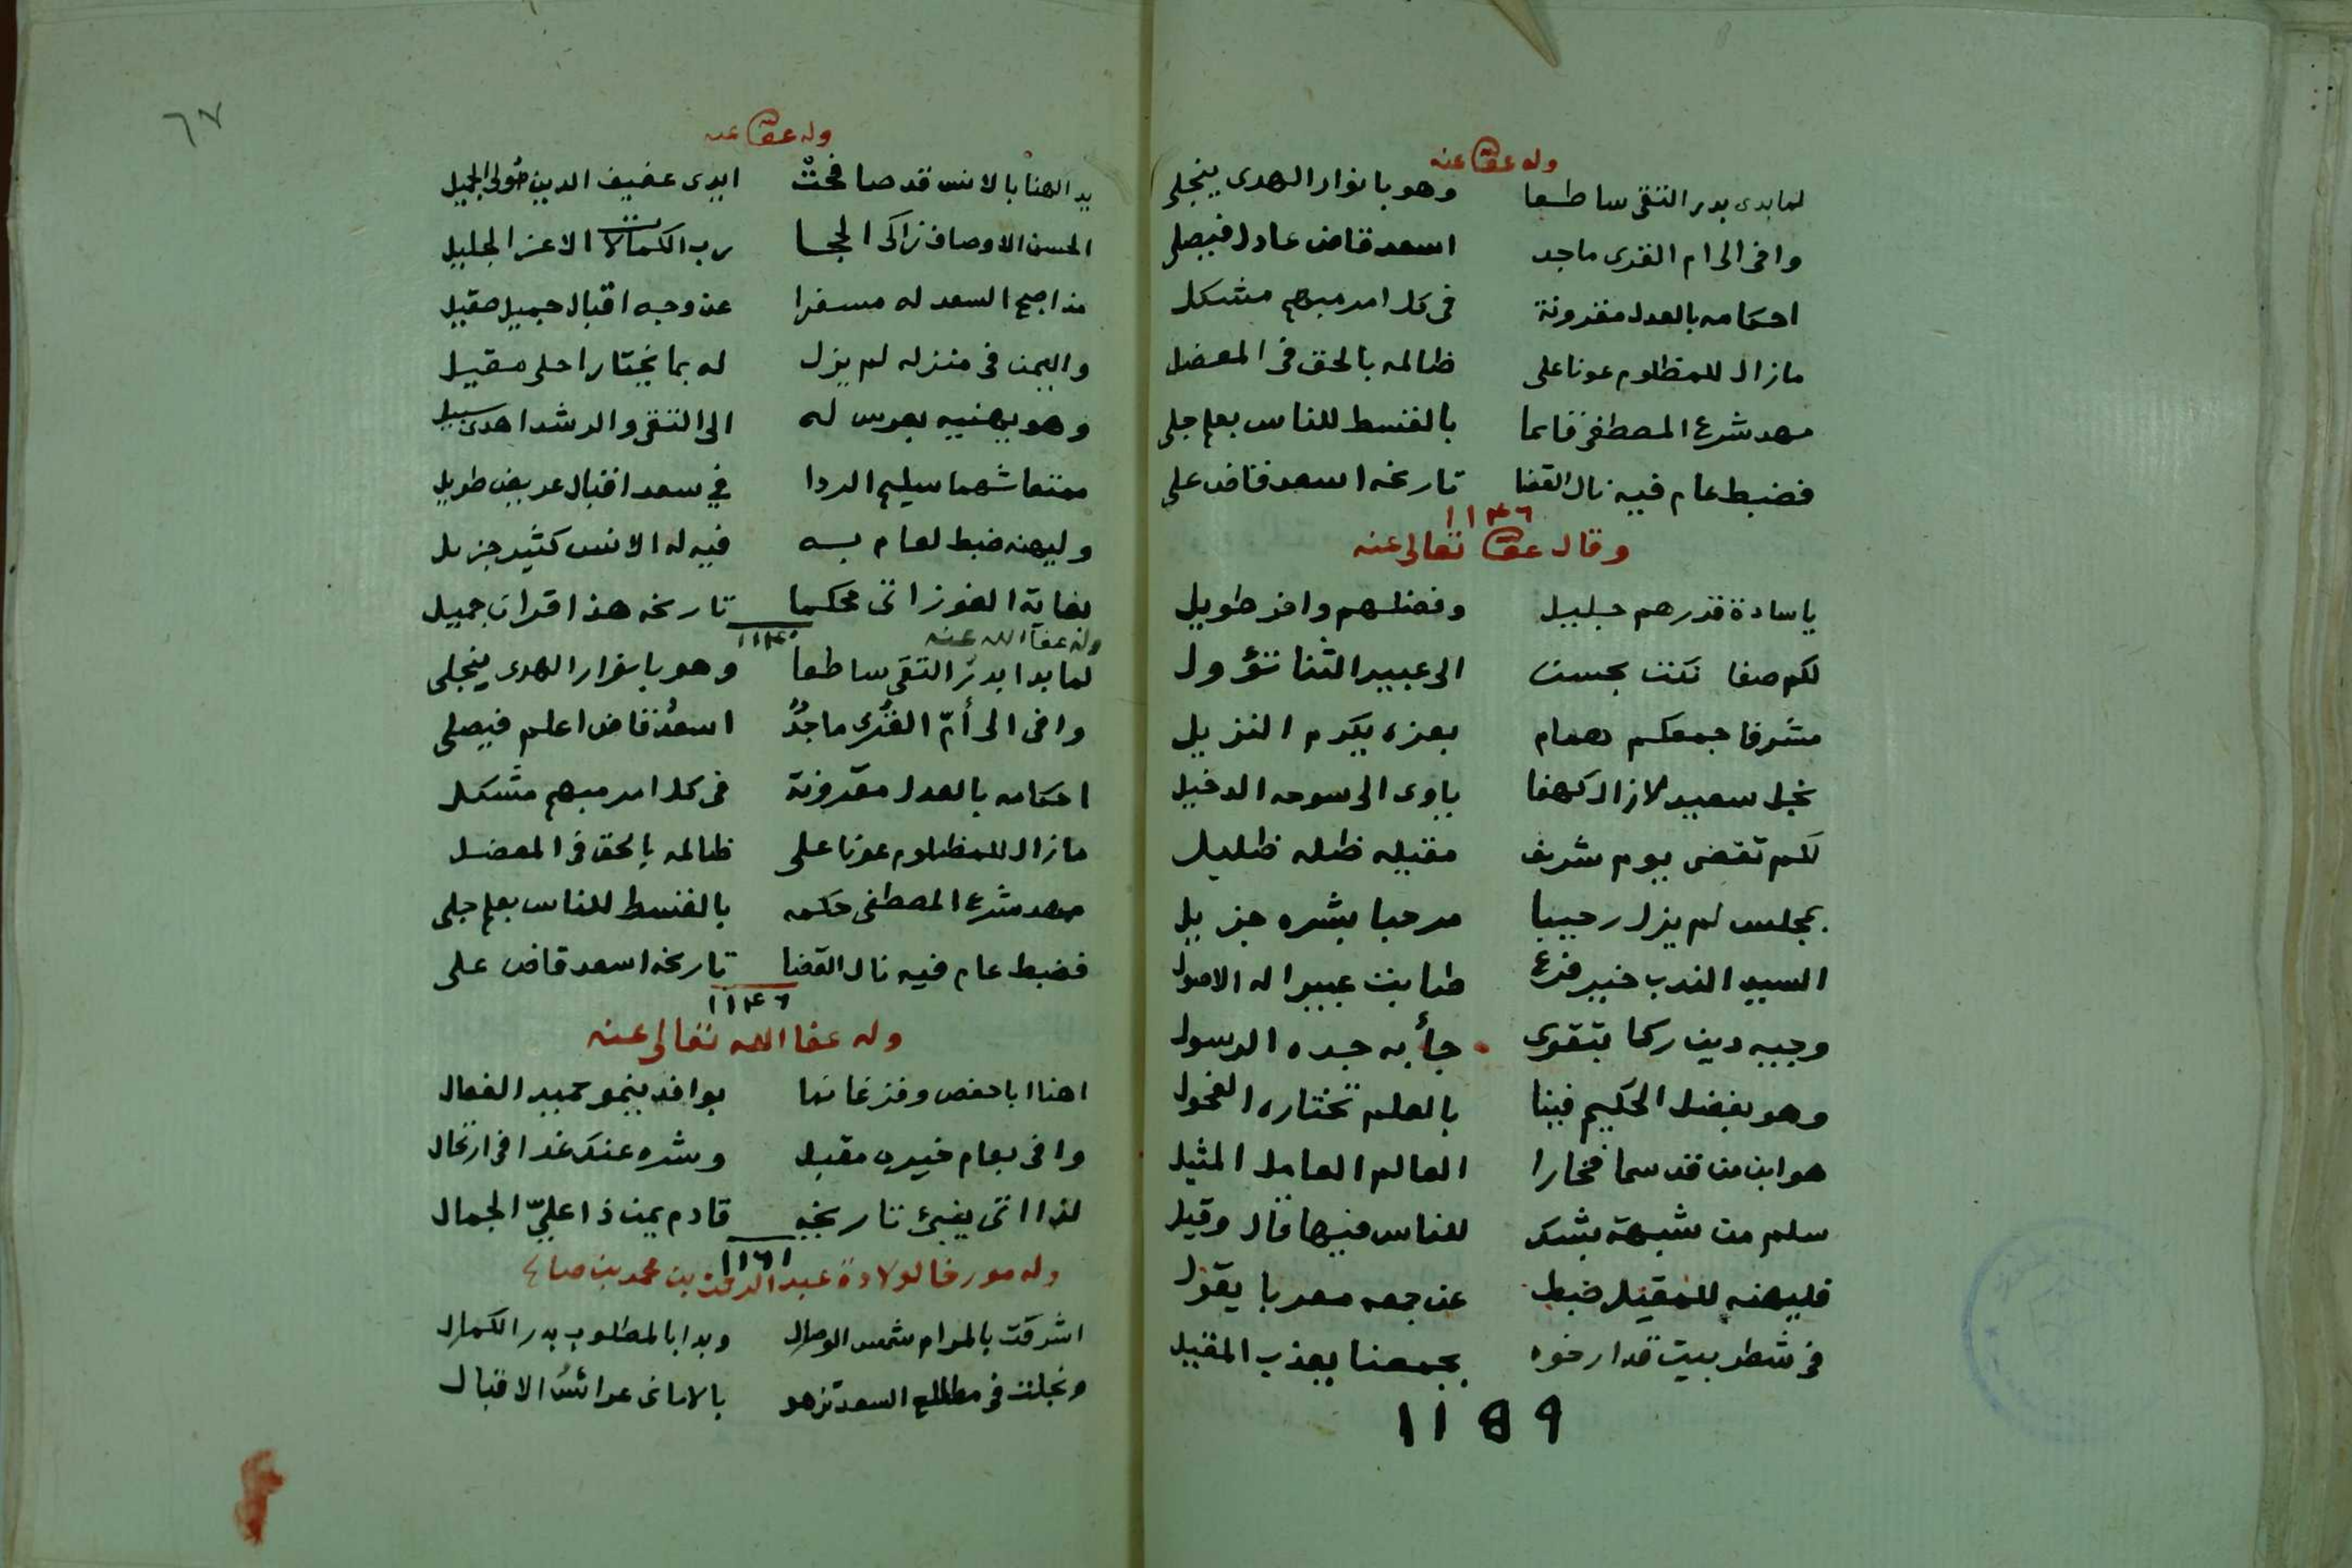 وله عفا الله عنه
لما بدى بدر التقى ساطعا وهو بانوار الهدى ينجلي
وافى الى ام القرى ماجد اسعد قاض عادل فيصلي
احكامه بالعدل مقرونة فى كل امر مبهم مشكل
مازال للمظلوم عونا على ظالمه بالحق فى المعضل
مهد شرع المصطفى قايما بالقسط للناس بعلم جلى
فضبط عام فيه نال القضا تاريخه اسعد قاض على
١١٤٦
وقال عفا الله تعالى عنه
ياسادة قدرهم جليل وفضلهم وافر طويل
لكم صفا نكنت بحسن الى عبير الثنا تؤول
مشرفا جمعكم همام بعزه يكرم النزيل
نجل سعيد لازال كهفا ياوى الى سوحه الدخيل
لكم تقضى بيوم شريف مقيله ظله ظليل
بمجلس لم يزل رحيبا مرحبا بشره جزيل
السيد الندب خير فرع طابت عبيرا له الاصول
وجيه دين زكا بتقوى جاء به جده الرسول
وهو بفضل الحكيم فينا بالعلم تختاره الفحول
هو ابن من قد سما فخارا العالم العامل المثيل
سلم من شبهة بشك للناس فيها قال وقيل
فليهنه للمقيل ضبط عن جمعه معربا يقول
فى شطر بيت قد ارخوه بجمعنا يعذب المقيل
١١٥٩
٦٧
وله عفا الله عنه
يد الهنا بالانس قد صافحتْ ايدى عفيف الدين مولى الجميل
الحسن الاوصاف زاكى الحجا رب الكمالات الاعز الجليل
مذ اصبح السعد له مسفرا عن وجه اقبال جميل صقيل
واليمن فى منزله لم يزل له بما يختار احلى مقيل
وهو يهنيه بعرس له الى التقى والرشد اهدى سبيل
ممتعا شهما سليم الردا في سعد اقبال عريض طويل
وليهنه ضبط لعام به فيه له الانس كثير جزيل
لغاية الفوز اتى محكما تاريخه هذا قران جميل
وله عفا الله عنه
لما بدا بدرُ التقى ساطعا وهو بانوار الهدى ينجلى
وافى الى أمّ القُرى ماجدٌ اسعدُ قاض اعلم فيصلى
احكامه بالعدل مقرونة فى كل امر مبهم مشكل
مازال للمظلوم عونا على ظالمه بالحق فى المعضل
مهد شرع المصطفى حكمه بالقسط للناس بعلم جلى
فضبط عام فيه نال القضا تاريخه اسعد قاض على
١١٤٦
وله عفا الله تعالى عنه
اهنا ابا حفص وفز غانما بوافد ينمو حميد الفعال
وافى بعام خيره مقبل وشره عنك غدا فى ارتحال
لذا اتى ينبئ تاريخه قادم يمن ذا عليّ الجمال
١١٦١
وله مورخا لولادة عبد الرحمن بن محمد بن صالح
اشرقت بالمرام شمس الوصال وبدا بالمطلوب بدر الكمال
وتجلت فى مطالع السعد تزهو بالامانى عرائسُ الاقبال